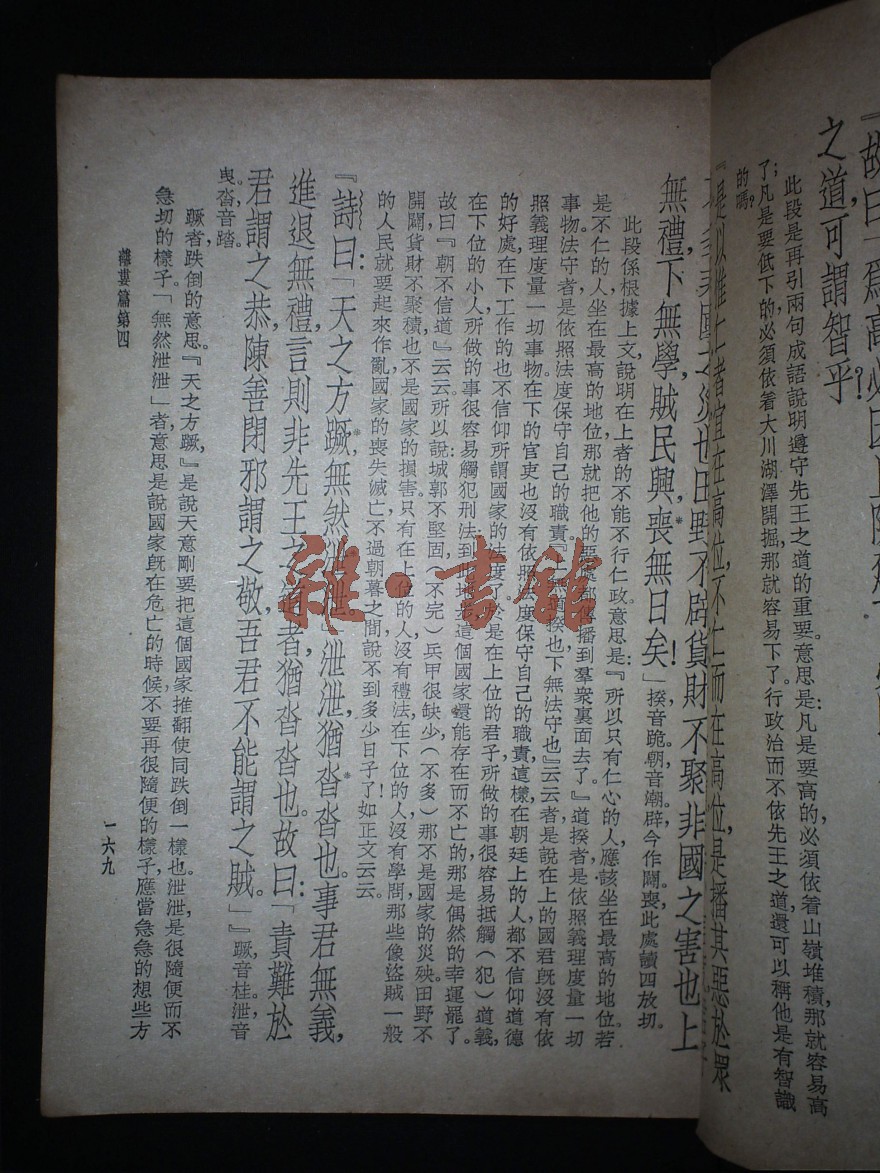 『故曰『爲高必因
之道，可謂智乎？
此段是再引兩句成語說明遵守先王之道的重要。意思是：凡是要高的，必須依着山嶺堆積，那就容易高
了；凡是要低下的，必須依着大川湖澤開掘，那就容易下了。行政治而不依先王之道，還可以稱他是有智識
的嗎？
『是以惟仁者宜在高位，不仁而在高位，是播其惡於眾
國之災也田野不辟貨財不聚非國之害也上
無禮下無學，賊民興，喪無日矣！」揆音跪。朝音潮。辟今作闢。喪此處讀四放切。
此段係根據上文，說明在上者的不能不行仁政。意思是：『所以只有仁心的人，應該坐在最高的地位；若
是不仁的人坐在最高的地位，那就把他的惡處都傳播到羣衆裏面去了。』道揆者是依照義理度量一切
事物。法守者是依照法度保守自己的職責。『上無道揆也，下無法守也』云云者，是說在上的國君旣沒有依
照義理度量一切事物，在下的官吏也沒有依照法度保守自己的職責，這樣，在朝廷上的人，都不信仰道德
的好處，在下工作的，也不信仰所謂國家的法度了。於是在上位的君子，所做的事很容易抵觸（犯）道義，
在下位的小人，所做的事很容易觸犯刑法。到此地步，這個國家還能存在而不亡的，那是偶然的幸運罷了。
故曰『朝不信道』云云。所以說：城郭不堅固（不完），兵甲很缺少（不多），那不是國家的災殃；田野不
開闢，貨財不聚積，也不是國家的損害；只有在上位的人沒有禮法，在下位的人沒有學問，那些像盜賊一般
的人民就要起來作亂，國家的喪失滅亡，不過朝暮之間，說不到多少日子了！如正文云云。
『詩曰：「天之方蹶，無然泄泄。」泄泄，猶沓沓也。事君無義，
進退無禮，言則非先王之道者，猶沓沓也。故曰：「責難於
君謂之恭，陳善閉邪謂之敬，吾君不能謂之賊。」』蹶，音桂。泄，音
曳。沓音踏。
蹶者跌倒的意思。『天之方蹶，』是說天意剛要把這個國家推翻使同跌倒一樣也。泄泄，是很隨便而不
急切的樣子。「無然泄泄」者，意思是說國家旣在危亡的時候，不要再很隨便的樣子，應當急急的想些方
離婁篇第四
一六九
雜·書館